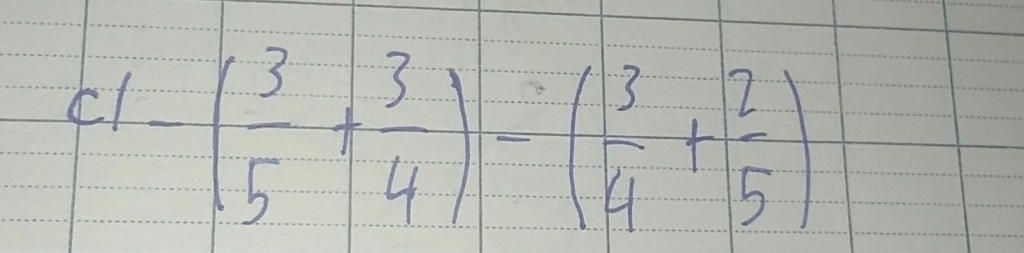 c/ - (3/5 + 3/4) - (3/4 + 2/5)